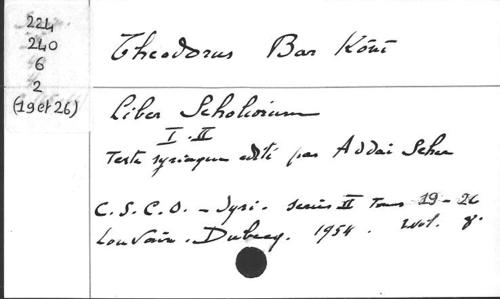 224
240
6
2
(19 et 26)
Theodorus Bar Kōnī
Liber Scholiorum
I . II
Texte syriaque edité par Addai Scher
C. S. C. O. – Syri. series II Tom 19 – 26
Louvain. Dubecq. 1954. 2 vol. 8.